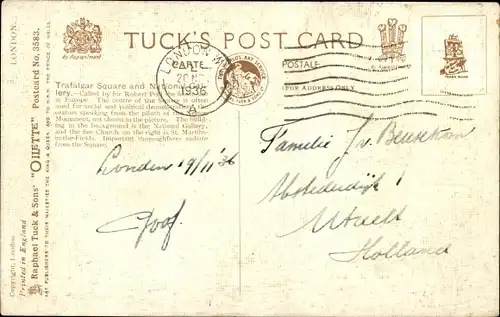 TUCK'S POST CARD
By Appointment
CARTE
POSTALE
(FOR ADDRESS ONLY)
LONDON
20 NOV
1936
Trafalgar Square and National Gal-
lery.—Called by Sir Robert Peel the finest site
in Europe. The centre of the Square is often
used for social and political demonstrations,
orators speaking from the plinth of the Nelson
Monument, not shown in the picture. The build-
ing in the background is the National Gallery,
and the fine Church on the right is St. Martin-
in-the-Fields. Important thoroughfares radiate
from the Square.
London 19/11 '36
Goof.
Familie J. v. Beusekom
1
Utrecht
Holland
LONDON.
"OILETTE" Postcard No. 3583.
Raphael Tuck & Sons'
ART PUBLISHERS TO THEIR MAJESTIES THE KING & QUEEN, AND TO H.R.H. THE PRINCE OF WALES.
Printed in England
Copyright, London